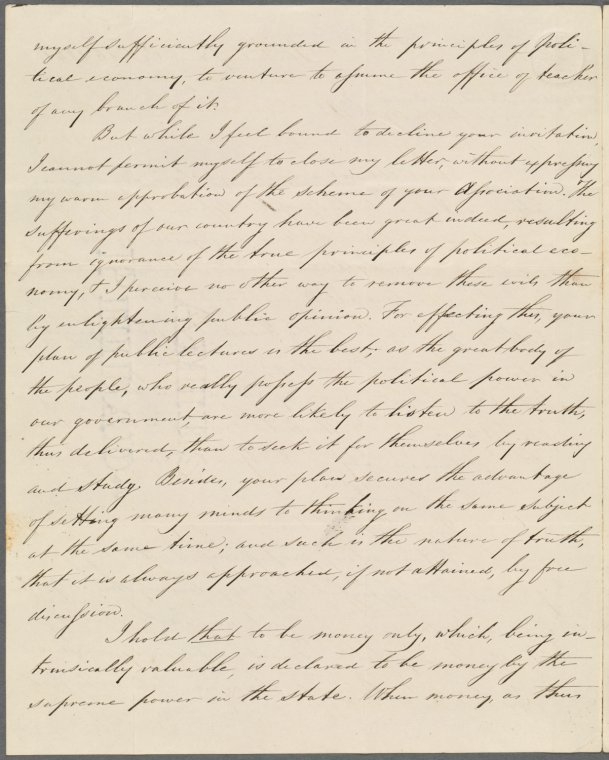 myself sufficiently grounded in the principles of poli-
tical economy, to venture to assume the office of teacher
of any branch of it.
But while I feel bound to decline your invitation,
I cannot permit myself to close my letter, without expressing
my warm approbation of the scheme of your Association. The
sufferings of our country have been great indeed, resulting
from ignorance of the true principles of political eco-
nomy, & I perceive no other way to remove these evils than
by enlightening public opinion. For effecting this, your
plan of public lectures is the best; as the great body of
the people, who really possess the political power in
our government, are more likely to listen to the truth,
thus delivered, than to seek it for themselves by reading
and study. Besides, your plan secures the advantage
of setting many minds to thinking on the same subject
at the same time; and such is the nature of truth,
that it is always approached, if not attained, by free
discussion.
I hold that to be money only, which, being in-
trinsically valuable, is declared to be money by the
supreme power in the state. When money, as thus